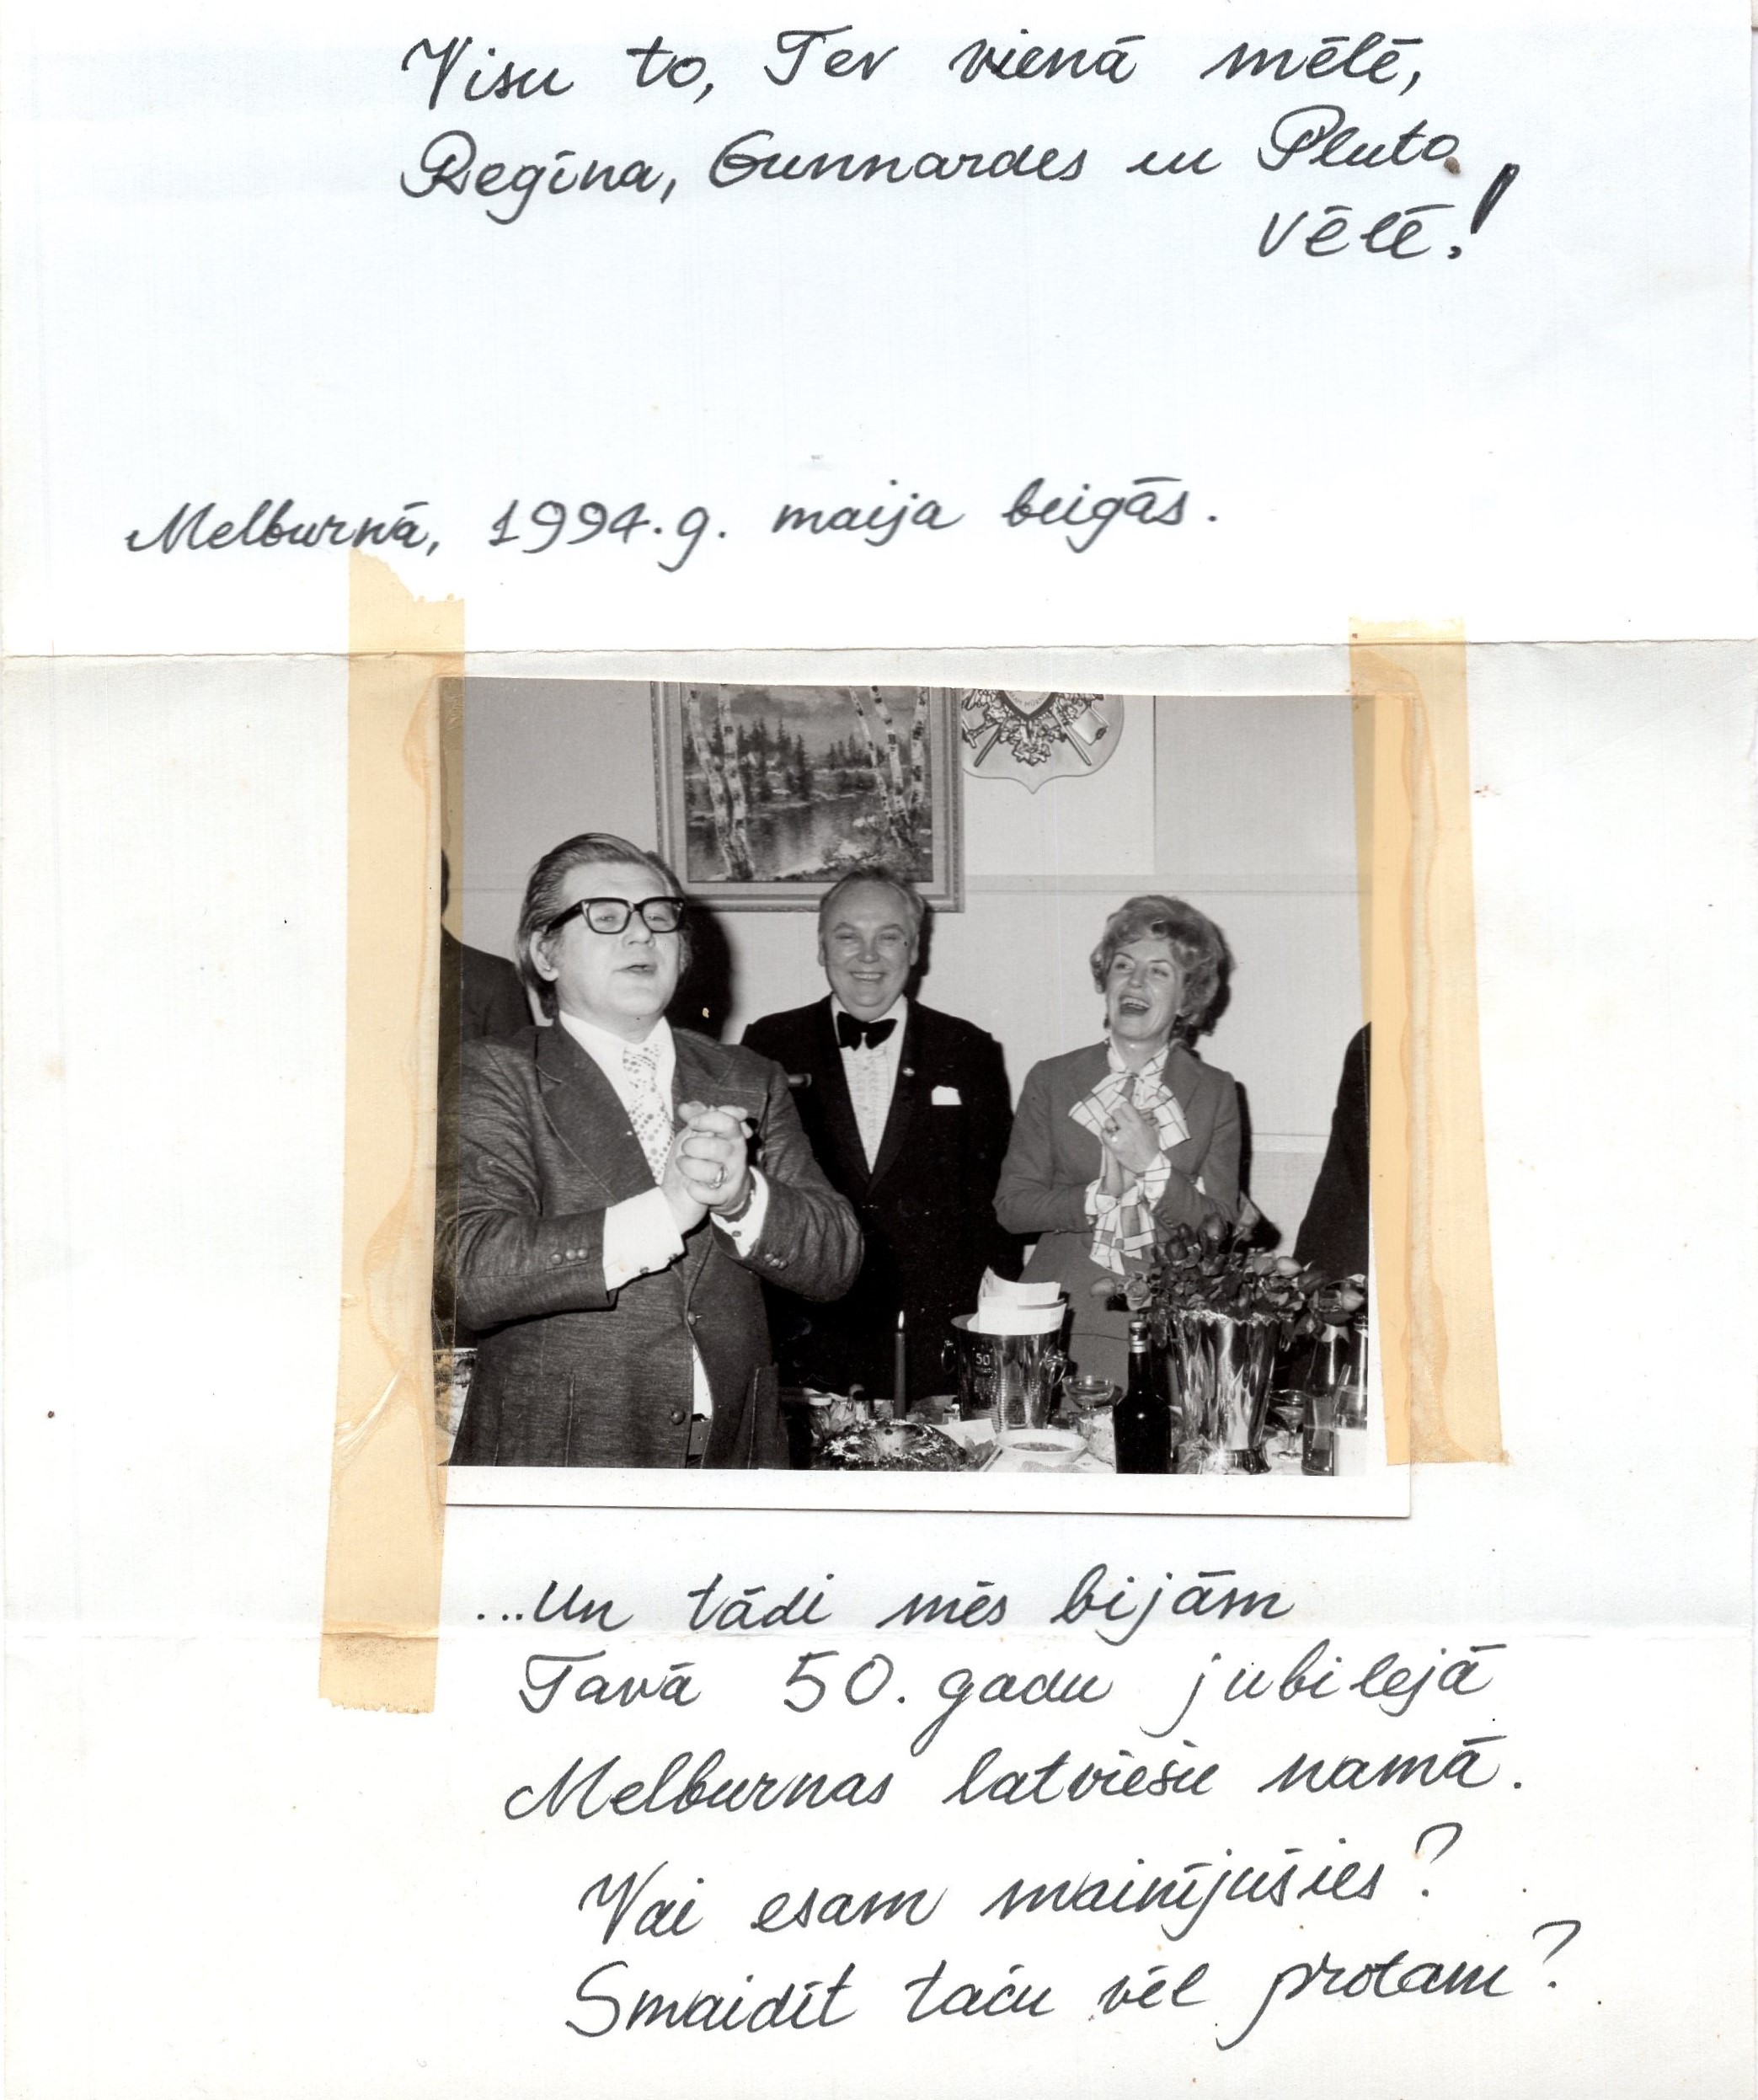 Visu to, Tev vienā mēlē,
Regīna, Gunnardes un Pluto
vēlē!
Melburnā, 1994.g. maija beigās.
50
...Un tādi mēs bijām
Tavā 50. gadu jubilejā
Melburnas latviešu namā.
Vai esam mainījušies?
Smaidīt taču vēl protam?